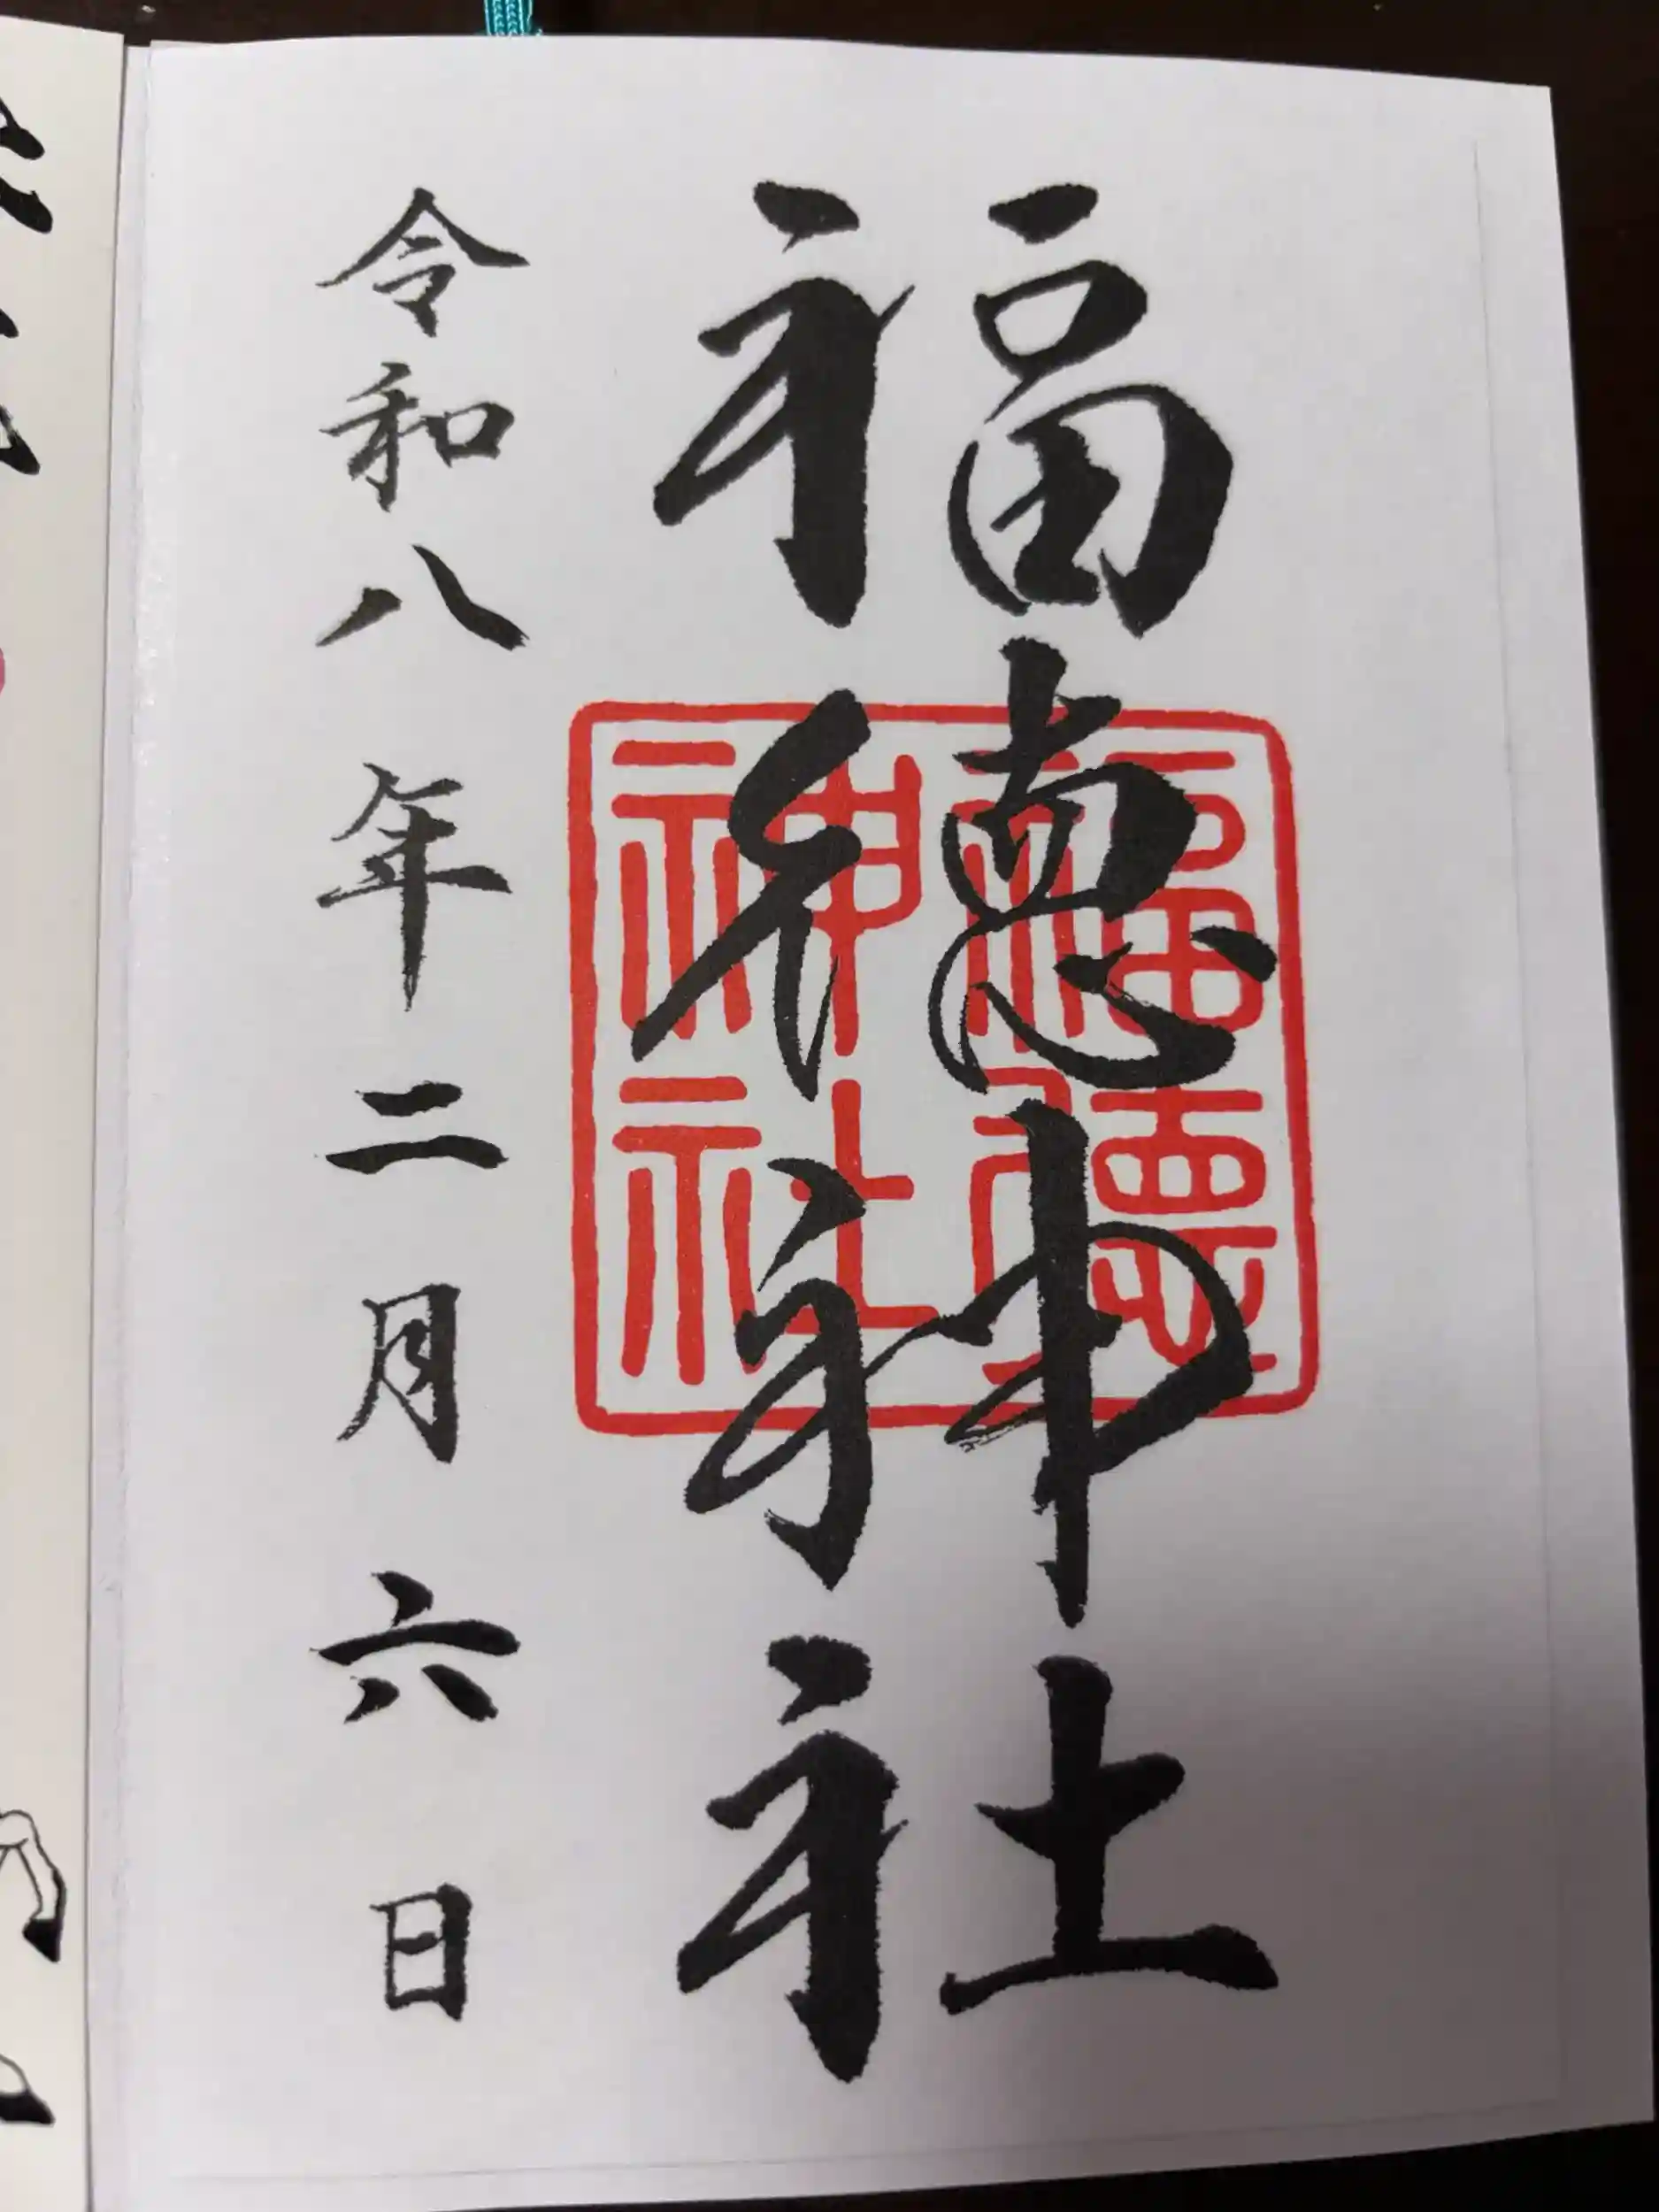 福德神社
令和八年二月六日
福德
神社